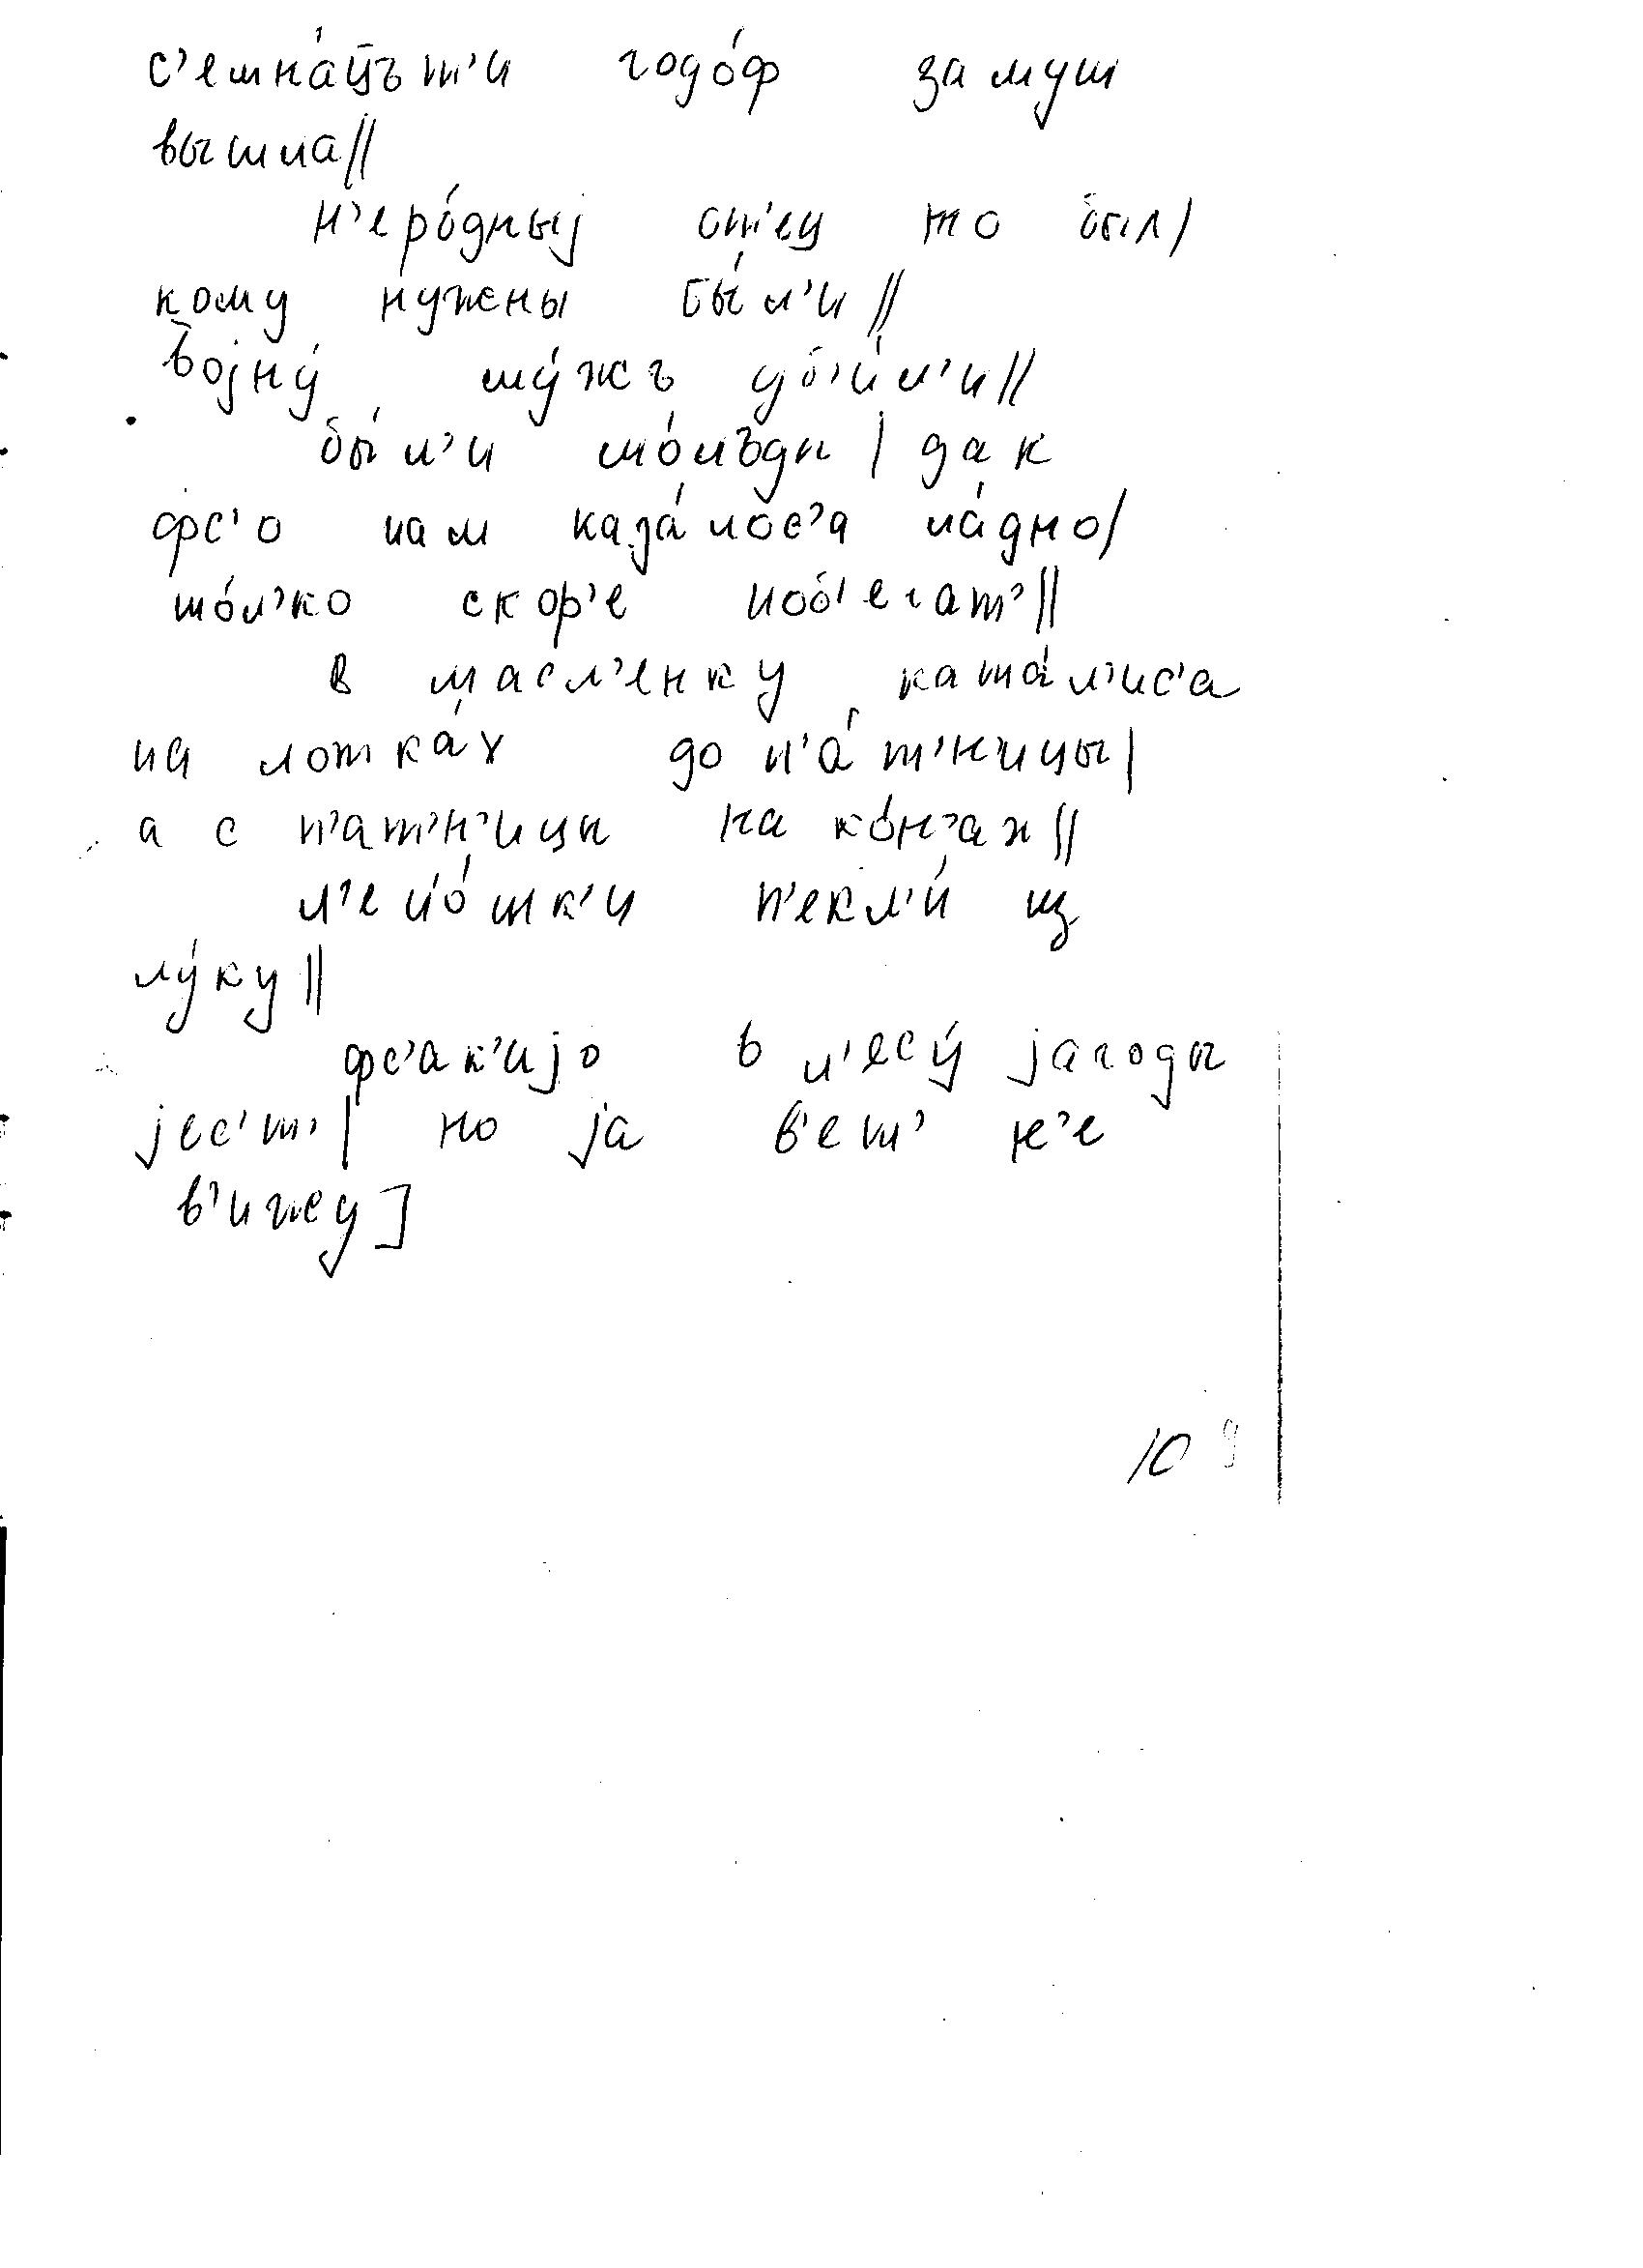 с'емна́цът'и годо́ф замуш
вышла||
н'еро́дныј от'ец то был|
кому нужены бы́л'и||
војну́ му́жъ уб'и́л'и||
бы́л'и мо́лъды | дак
фс'о нам каза́лос'а ла́дно|
то́л'ко скор'е поб'егат'||
в масл'енку ката́л'ис'а
на лотка́х до п'а́т'н'ицы|
а с п'ат'н'ицы на ко́н'ах||
л'еп'о́шк'и п'екл'и́ из
лу́ку||
фс'ак'ијо в л'есу́ јагоды
јес'т'| но ја в'ет' н'е
в'ижу]
109